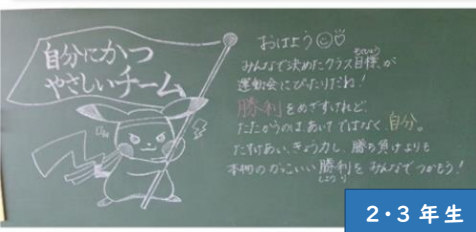 自分にかつ
やさしいチーム
おはよう
みんなで決めたクラス目標が
もくひょう
運動会にぴったりだね！
勝利をめざすけれど、
たたかうのは、あいてではなく、自分。
たすけあい、きょう力し、勝ち負けよりも
本物のかっこいい勝利をみんなでつかもう！
しょうり
2・3年生